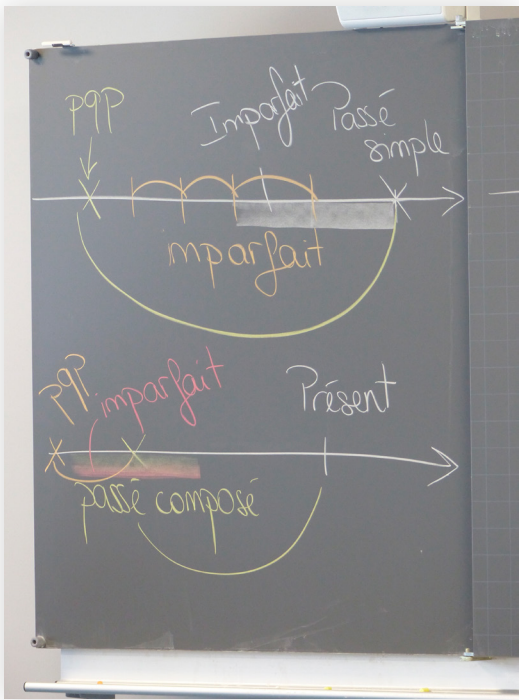 pqp
Imparfait
Passé
simple
mparfait
pqp
imparfait
Présent
passé composé